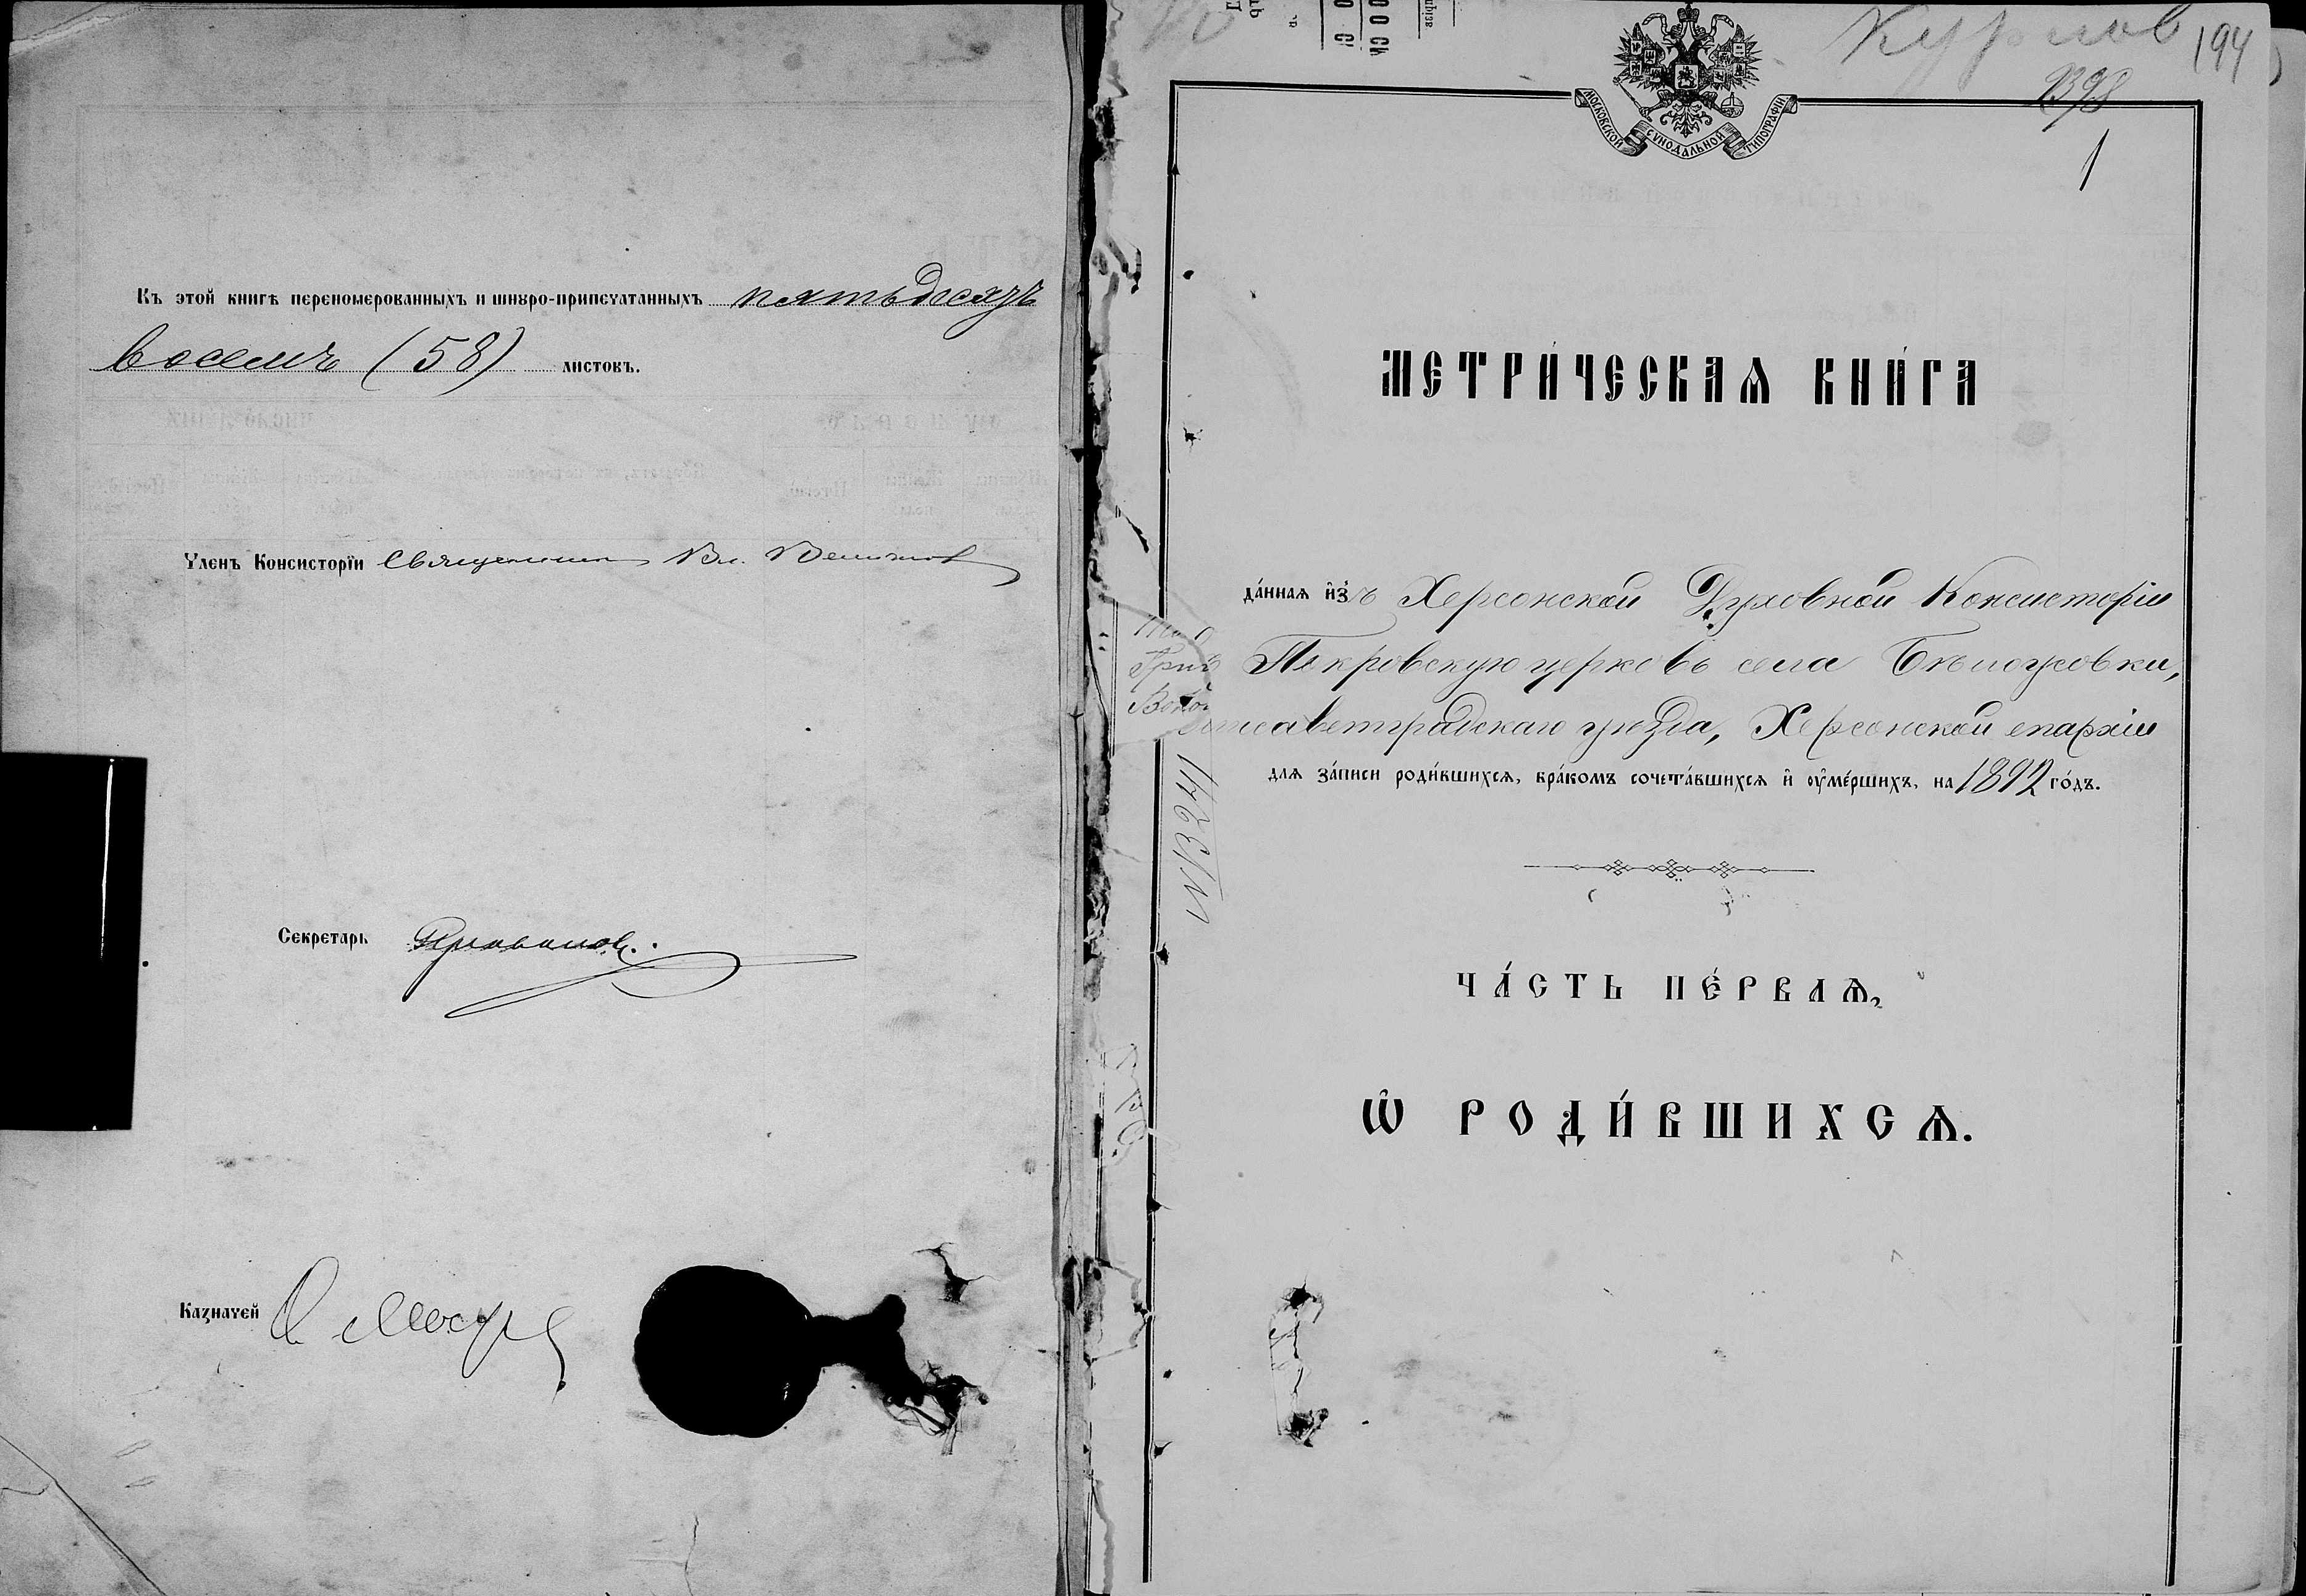 Къ этой книгѣ переномерованныхъ и шнуро-припечатанныхъ пятьдесятъ
восемь (58) листовъ.
Членъ Консисторїи Священникъ Вл.
Секретарь
Казначей
194
1398
1
МОСКОВСКОЙ СѴНОДАЛЬНОЙ ТИПОГРАФІИ
МЕТРИ́ЧЕСКАѦ КНИ́ГА
да́нная и҆зъ Херсонской Духовной Консисторіи
въ Покровскую церковь села Бѣлоусовки,
Елисаветградскаго уѣзда, Херсонской епархіи
для за́писи роди́вшихся, бра́комъ сочета́вшихся и҆ оу҆ме́ршихъ, на 1892 го́дъ.
№ 3241
ЧА́СТЬ ПЕ́РВАѦ,
Ѡ҆ РОДИ́ВШИХСѦ.